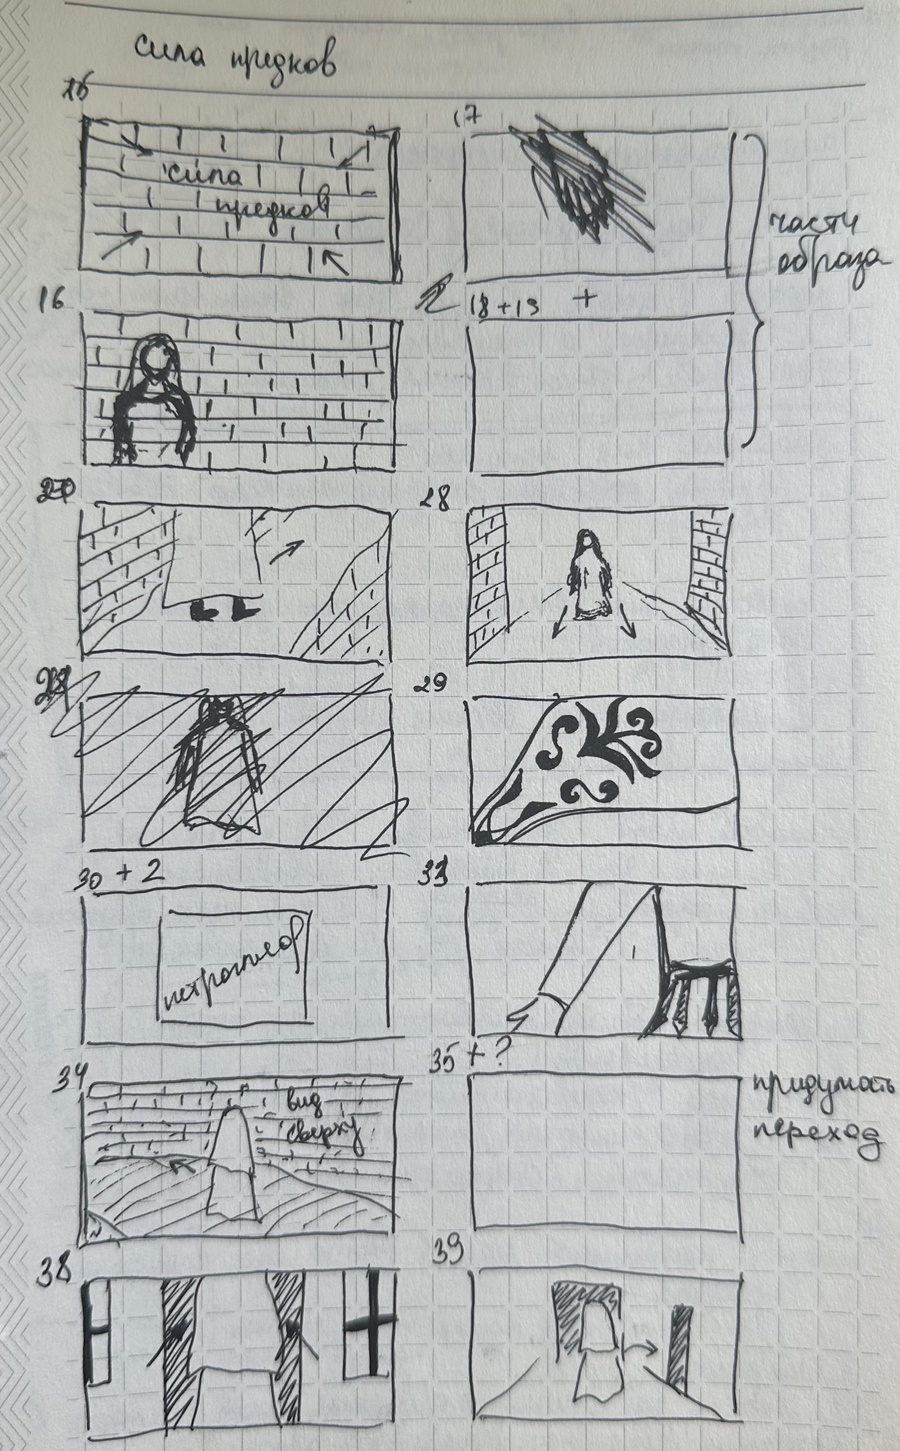 сила предков
15
17
сила
предков
части
образа
16
18+19 +
28
29
30 + 2
33
петроглиф
34
35 + ?
вид
сверху
придумать
переход
38
39